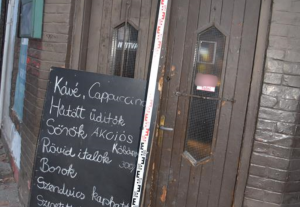 Kávé, Cappuccino
Hűtött üdítők
Sörök AKCIÓS
Rövid italok
Borok
Szendvics kapható